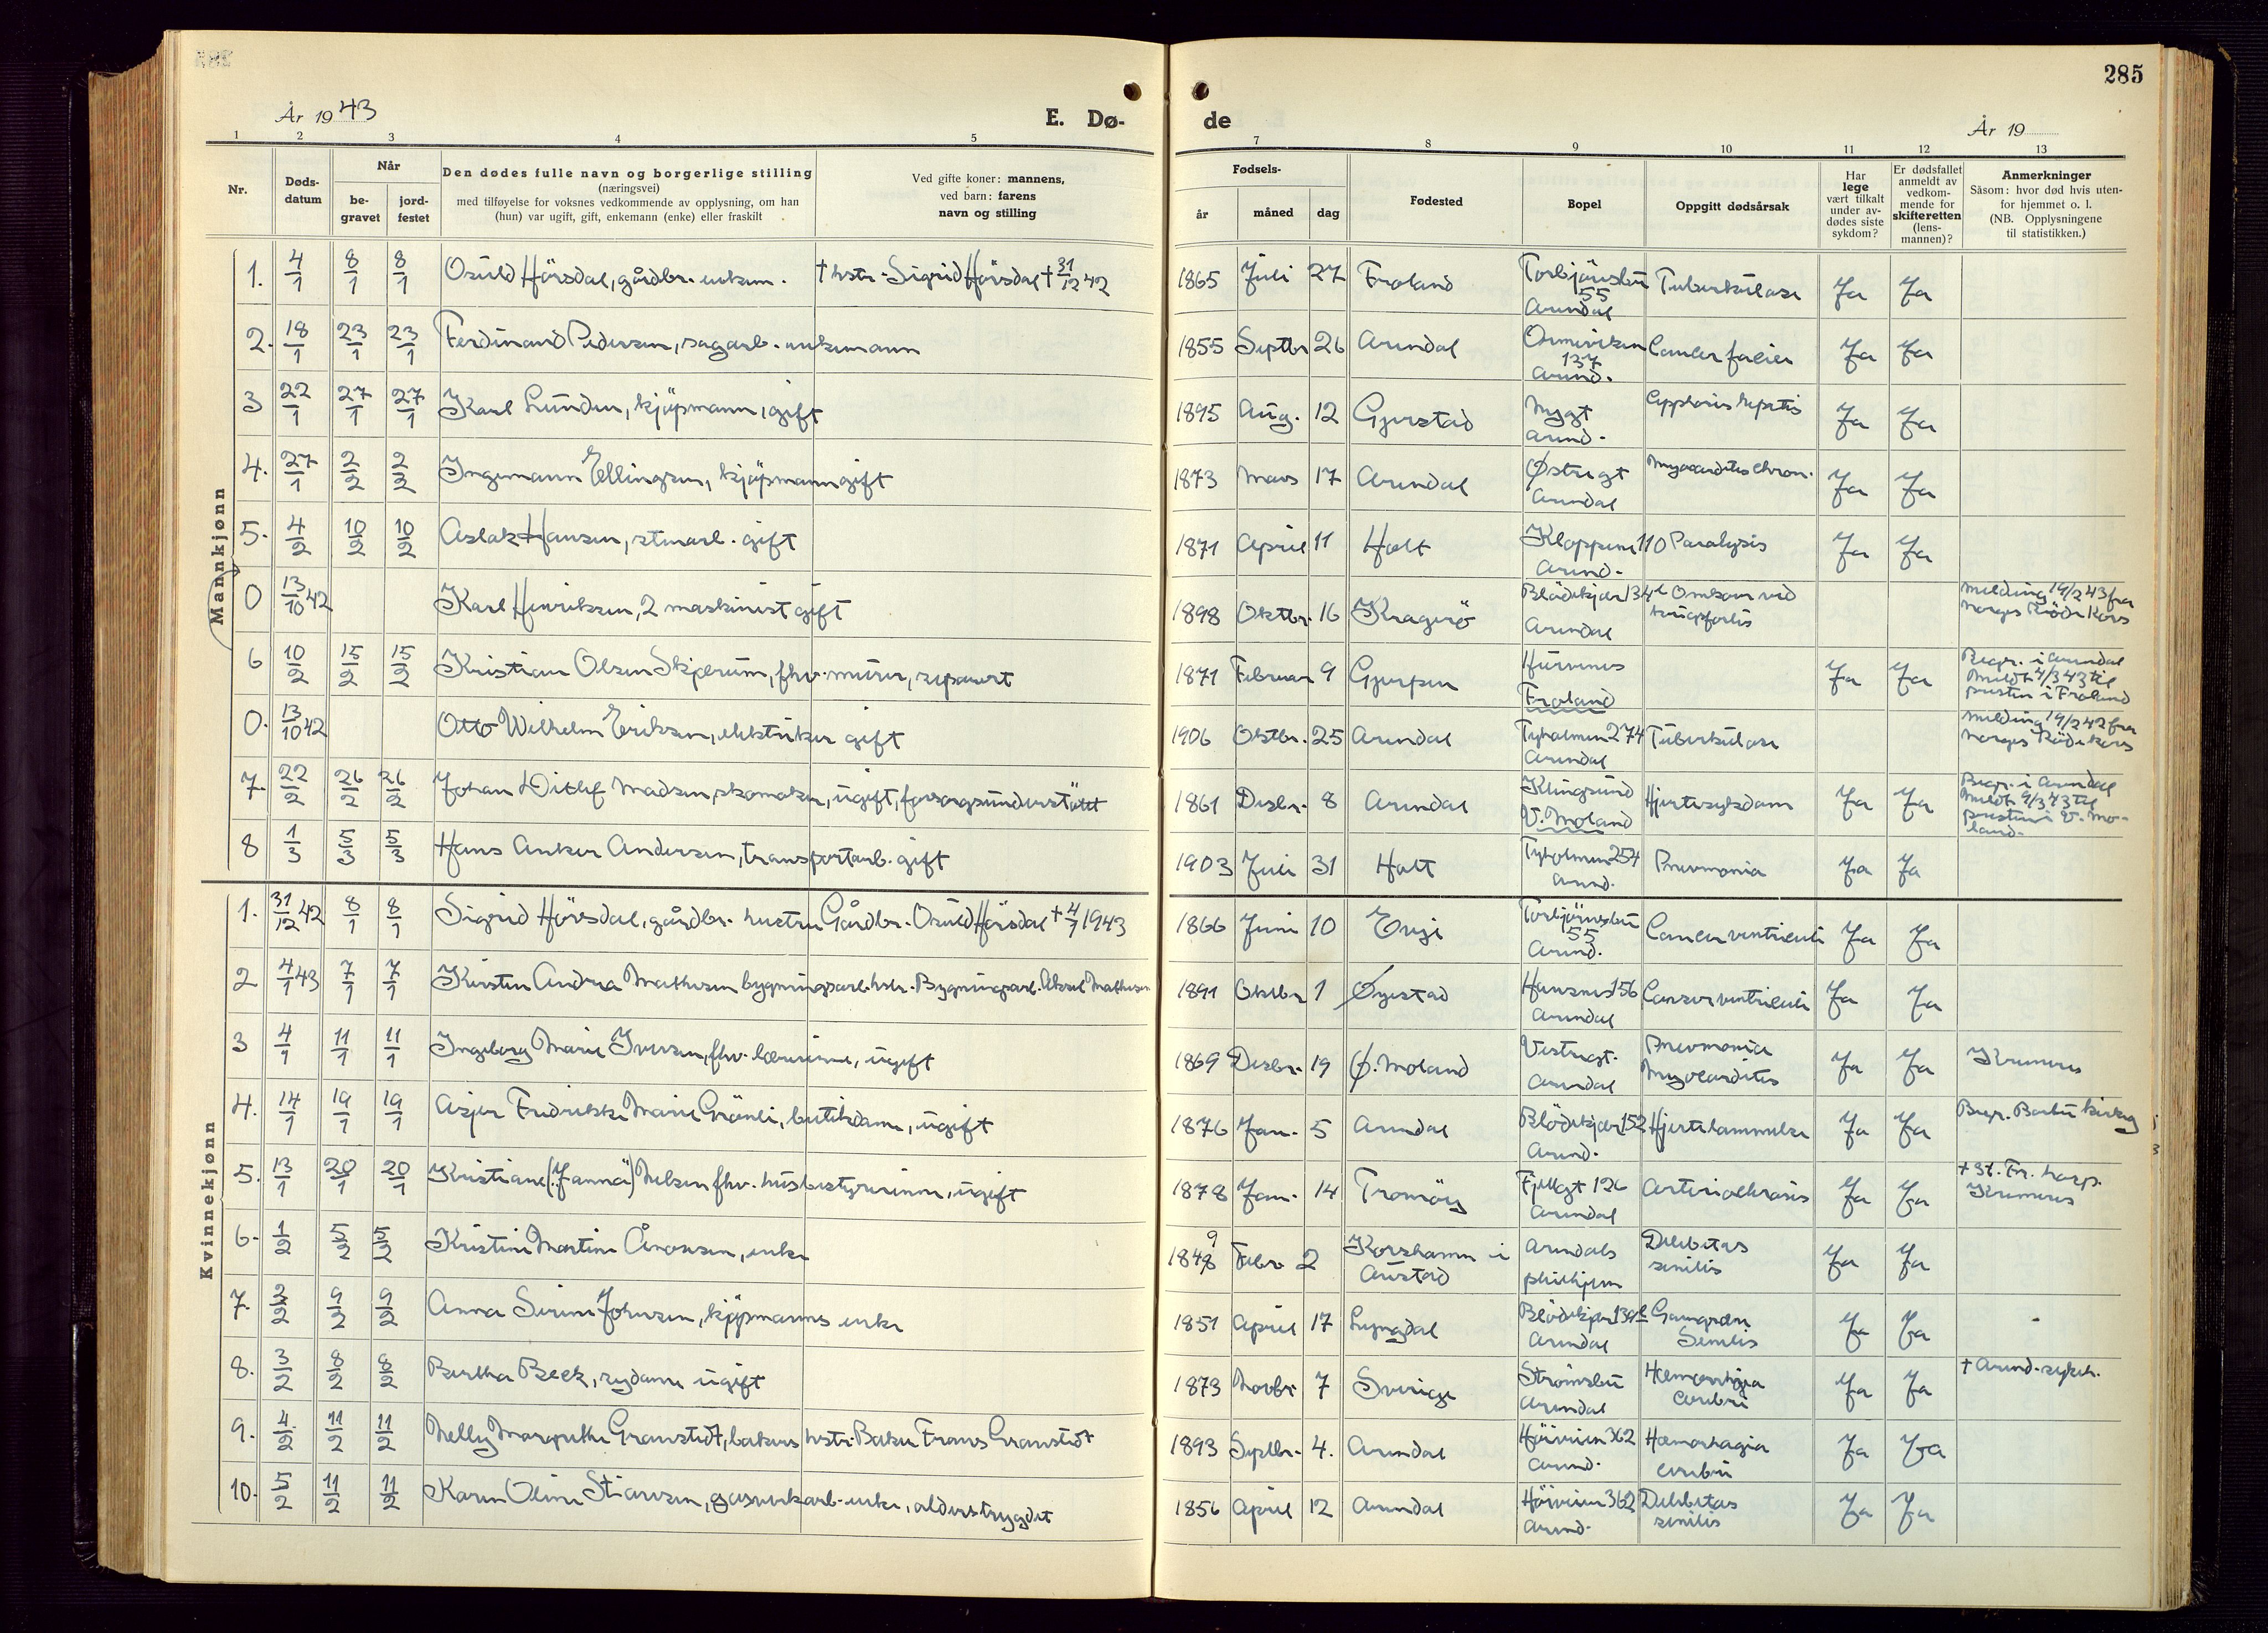 285
År 1943
E. Dø-
de
År 19
1 2 3 4 5
7 8 9 10 11 12 13
Nr.
Døds-
datum
Når
be-
gravet
jord-
festet
Den dødes fulle navn og borgerlige stilling
(næringsvei)
med tilføyelse for voksnes vedkommende av opplysning, om han
(hun) var ugift, gift, enkemann (enke) eller fraskilt
Ved gifte koner: mannens,
ved barn: farens
navn og stilling
Fødsels-
år måned dag
Fødested
Bopel
Oppgitt dødsårsak
Har
lege
vært tilkalt
under av-
dødes siste
sykdom?
Er dødsfallet
anmeldt av
vedkom-
mende for
skifteretten
(lens-
mannen)?
Anmerkninger
Såsom: hvor død hvis uten-
for hjemmet o. l.
(NB. Opplysningene
til statistikken.)
Mannkjønn
1. 4/1 8/1 8/1 Osuld Hørsdal, gårdbr. enkem. † hstr. Sigrid Hørsdal † 31/12 42 1865 Juli 27 Froland Torbjørnsbu 55 Arendal Tuberkulose Ja Ja
2. 18/1 23/1 23/1 Ferdinand Pedersen, sagarb. enkemann 1855 Septbr 26 Arendal 137 Arend. Cancer faciei Ja Ja
3 22/1 27/1 27/1 Karl Lunden, kjøpmann, gift 1895 Aug. 12 Gjerstad Nygt Arend. Ja Ja
4. 27/1 2/2 2/2 Ingemann Ellingsen, kjøpmann gift 1873 Mars 17 Arendal Østregt Arendal Myocarditis chron. Ja Ja
5. 4/2 10/2 10/2 Aslak Hansen, stenarb. gift 1871 April 11 Holt Kloppene 110 Arend. Paralysis Ja Ja
0 13/10 42 Karl Henriksen, 2 maskinist gift 1898 Oktbr. 16 Kragerø Blødekjær 134 e Arendal Omkom ved krigsforlis Melding 19/2 43 fra Norges Røde Kors
6 10/2 15/2 15/2 Kristian Olsen Skjerum, fhv. murer, separert 1871 Februar 9 Gjerpen Hurvenes Froland Ja Ja Begr. i Arendal Meldt 9/3 43 til presten i Froland
0. 13/10 42 Otto Wilhelm Eriksen, elektriker gift 1906 Oktbr. 25 Arendal Tyholmen 274 Arendal Tuberkulose Melding 19/2 42 fra Norges Røde Kors
7. 22/2 26/2 26/2 Johan Ditlef Madsen, skomaker, ugift, forsorgsunderstøttet 1861 Desbr. 8 Arendal Klingsund V. Moland Hjertesykdom Ja Ja Begr. i Arendal Meldt 9/3 43 til presten i V. Mo-
land.
8 1/3 5/3 5/3 Hans Anker Andersen, transportarb. gift 1903 Juli 31 Holt Tyholmen 254 Arend. Pnevmonia Ja Ja
Kvinnekjønn
1. 31/12 42 8/1 8/1 Sigrid Hørsdal, gårdbr. hustru Gårdbr. Osuld Hørsdal † 4/1 1943 1866 Juni 10 Evje Torbjørnsbu 55 Arend. Cancer ventriculi Ja Ja
2 4/1 43 7/1 7/1 Kirsten Andrea Mathisen bygningsarb. hstr. Bygningsarb. Aksel Mathisen 1891 Oktbr 1 Øyestad Hansnes 156 Arendal Cancer ventriculi Ja Ja
3 4/1 11/1 11/1 Ingeborg Marie Iversen, fhv. lærerinne, ugift 1869 Desbr. 19 Ø. Moland Vestregt. Arendal Pnevmonia Myocarditis Ja Ja Kremeres
4. 14/1 19/1 19/1 Asjer Fredrikke Marie Grønli, butikdame, ugift 1876 Jan. 5 Arendal Blødekjær 152 Arend. Hjertelammelse Ja Ja Begr. Barbu kirkeg
5. 13/1 20/1 20/1 Kristiane (Janna) Nelsen fhv. husbestyrerinne, ugift 1878 Jan. 14 Tromøy Fjellgt 126 Arendal Arteriosclerosis Ja Ja + St. Fr. hosp. Kremeres
6. 1/2 5/2 5/2 Kristine Martine Aronsen, enke 1849 Febr 2 Korshamn i Austad Arendals pleiehjem Debilitas senilis Ja Ja
7. 2/2 9/2 9/2 Anna Serine Johnsen, kjøpmanns enke 1851 April 17 Lyngdal Blødekjær 139 e Arendal Gangren Senilis Ja Ja
8. 3/2 8/2 8/2 Bertha Beck, sydame ugift 1873 Novbr. 7 Sverige Strømsbu Arendal Hæmorrhagia cerebri Ja Ja † Arend. sykeh.
9. 4/2 11/2 11/2 Nelly Margrethe Granstedt, bakers hstr. Baker Frans Granstedt 1893 Septbr. 4. Arendal 362 Arend. Hæmorhagia cerebri Ja Ja
10. 5/2 11/2 11/2 Karen Oline Stiansen, gasverkarb. enke, alderstrygdet 1856 April 12 Arendal 362 Arend. Debilitas senilis Ja Ja